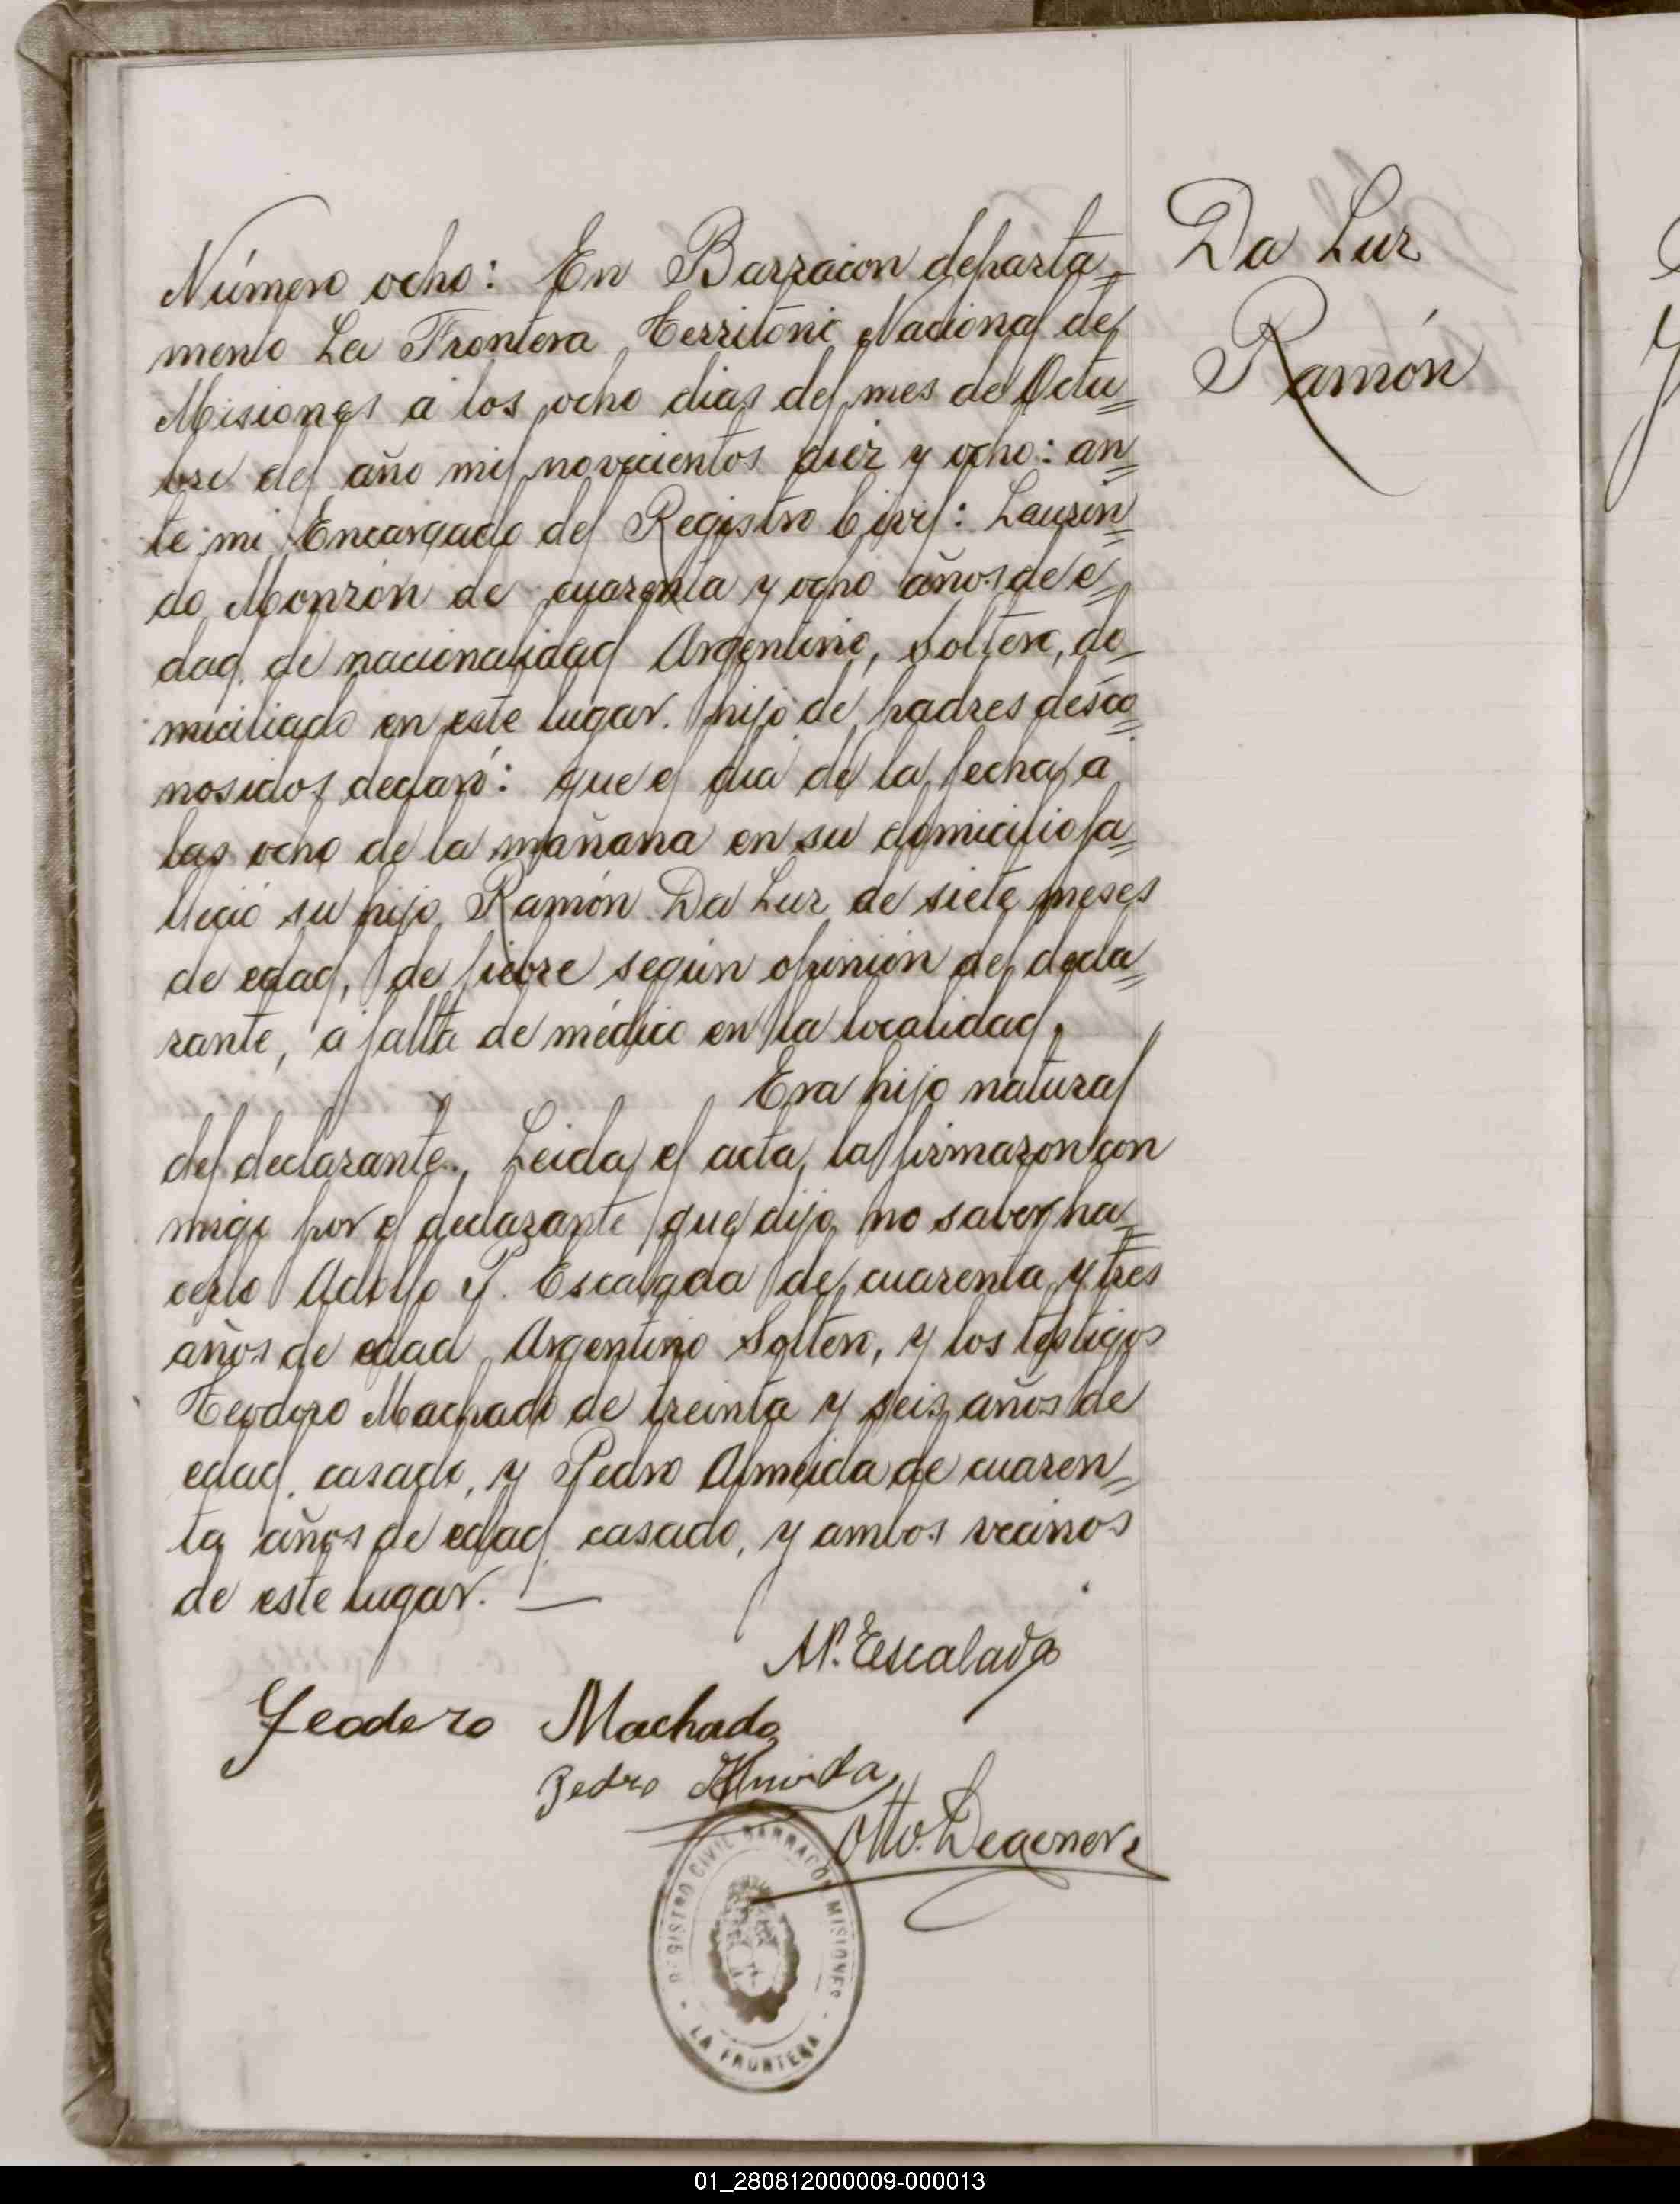 Número ocho: En Barracon departa=
mento La Frontera Territorio Nacional de
Misiones a los ocho dias del mes de Octu=
bre del año mil novecientos diez y ocho: an=
te mi Encargado del Registro Civil: Laurin=
do Monzón de cuarenta y ocho años de e=
dad, de nacionalidad Argentino, soltero, do=
miciliado en este lugar. hijo de padres desco=
nosidos declaró: que el dia de la fecha, a
las ocho de la mañana en su domicilio fa=
lleció su hijo Ramón Da Luz de siete meses
de edad, de fiebre según opinión del decla=
rante, a falta de médico en la localidad,
Era hijo natural
del declarante. Leida el acta, la firmaron con
migo por el declarante que dijo no saber ha=
cerlo Adolfo P. Escalada de cuarenta y tres
años de edad, Argentino Soltero, y los testigos
Teodoro Machado de treinta y seis años de
edad, casado, y Pedro Almeida de cuaren=
ta años de edad, casado, y ambos vecinos
de este lugar. —
Da Luz
Ramón
AP. Escalada
Teodoro Machado
Pedro Almida
Otto
REGISTRO CIVIL BARRACON MISIONES
LA FRONTERA
01_280812000009-000013